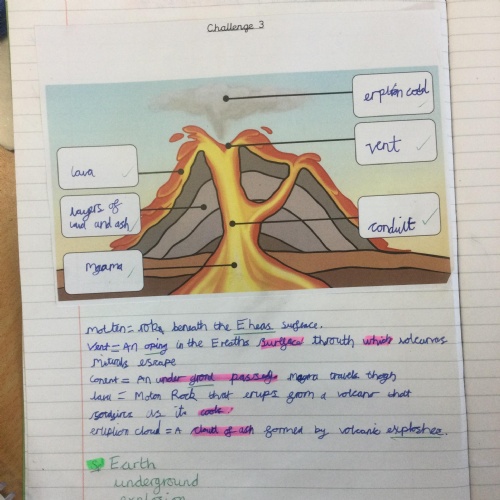 Challenge 3
erption cloud
vent
lava
layers of
lava and ash
conduit
Magma
Molten = rocks beneath the Eheas surface.
Vent = An oping in the Ereaths surface throuth which volcanos
escape
= An under grond passage magma travels thogh
lava = Moton Rock that erups from a volcano that
as it cools.
eruption cloud = A cloud of ash formed by volcanic exploshez.
Earth
underground
explosion